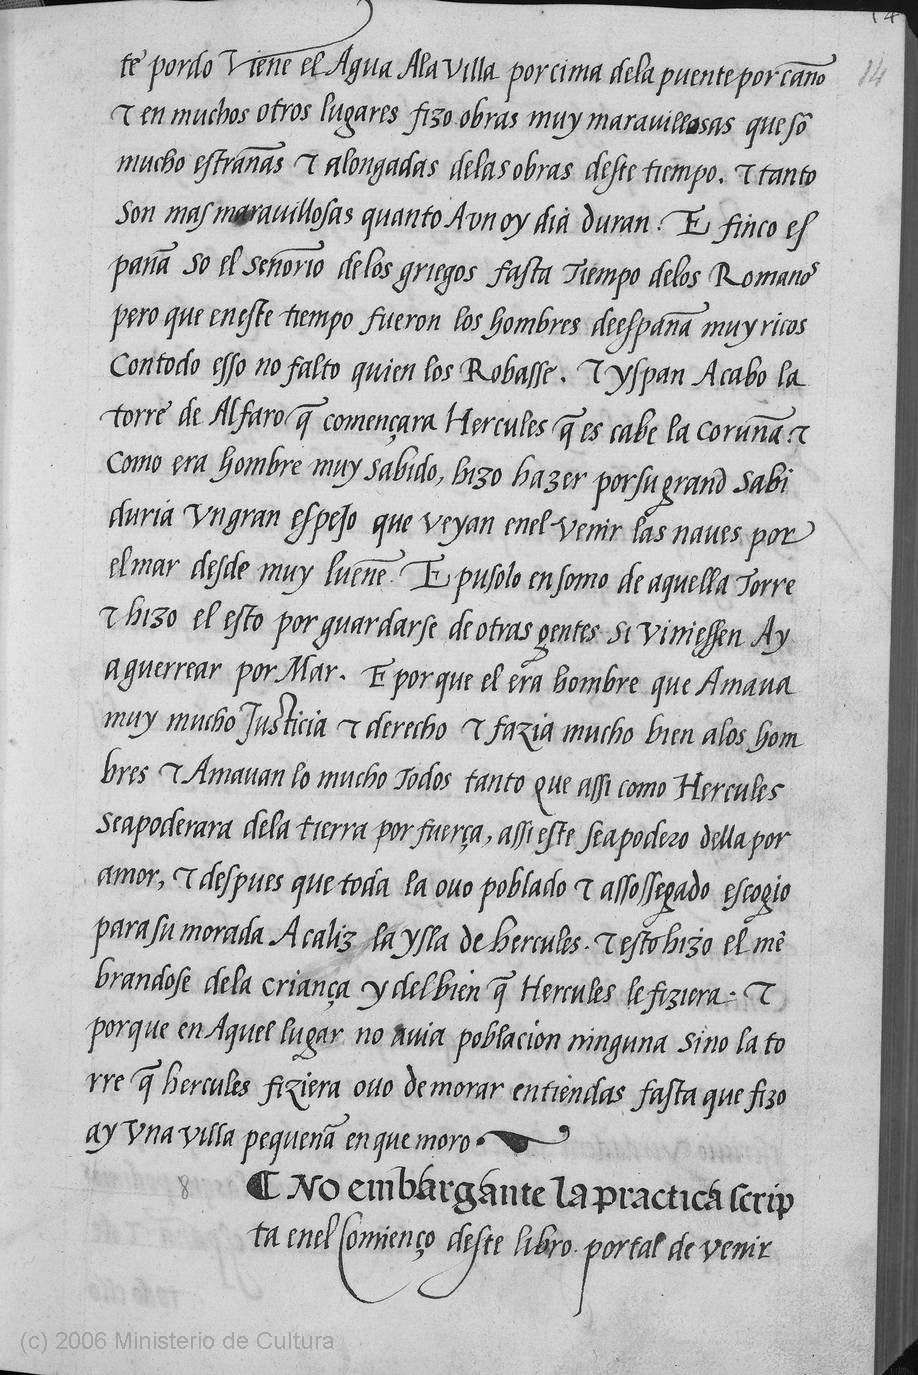 14
14
te pordo Viene el Agua Ala villa por cima dela puente por cãno
τ en muchos otros lugares fizo obras muy maravillosas que sõ
mucho estrañas τ alongadas delas obras deste tiempo. τ tanto
son mas maravillosas quanto Avn oy dia duran: E finco es
paña so el señorio delos griegos fasta Tiempo delos Romanos
pero que eneste tiempo fueron los hombres deespaña muy ricos
Contodo esso no falto quien los Robasse. τ yspan Acabo la
torre de Alfaro q̃ començara Hercules q̃ es cabe la coruña: τ
Como era hombre muy sabido, hizo hazer por su grand Sabi
duria Vn gran espejo que veyan enel venir las naves por
el mar desde muy lueñe. E pusolo en somo de aquella Torre
τ hizo el esto por guardarse de otras gentes si viniessen Ay
a guerrear por Mar. E porque el era hombre que Amaua
muy mucho Justicia τ derecho τ fazia mucho bien alos hom
bres τ Amauan lo mucho Todos tanto que assi como Hercules
Seapoderara dela tierra por fuerça, assi este seapodero della por
amor, τ despues que toda la ouo poblado τ assossegado escogio
para su morada A caliz la ysla de hercules. τ esto hizo el mẽ
brandose dela criança y del bien q̃ Hercules le fiziera: τ
porque en Aquel lugar no avia poblacion ninguna sino la to
rre q̃ hercules fiziera ouo demorar entiendas fasta que fizo
ay Vna villa pequeña en que moro.
8 ¶ No embargante la practica scrip
ta enel Comienço deste libro. por tal de venir
(c) 2006 Ministerio de Cultura